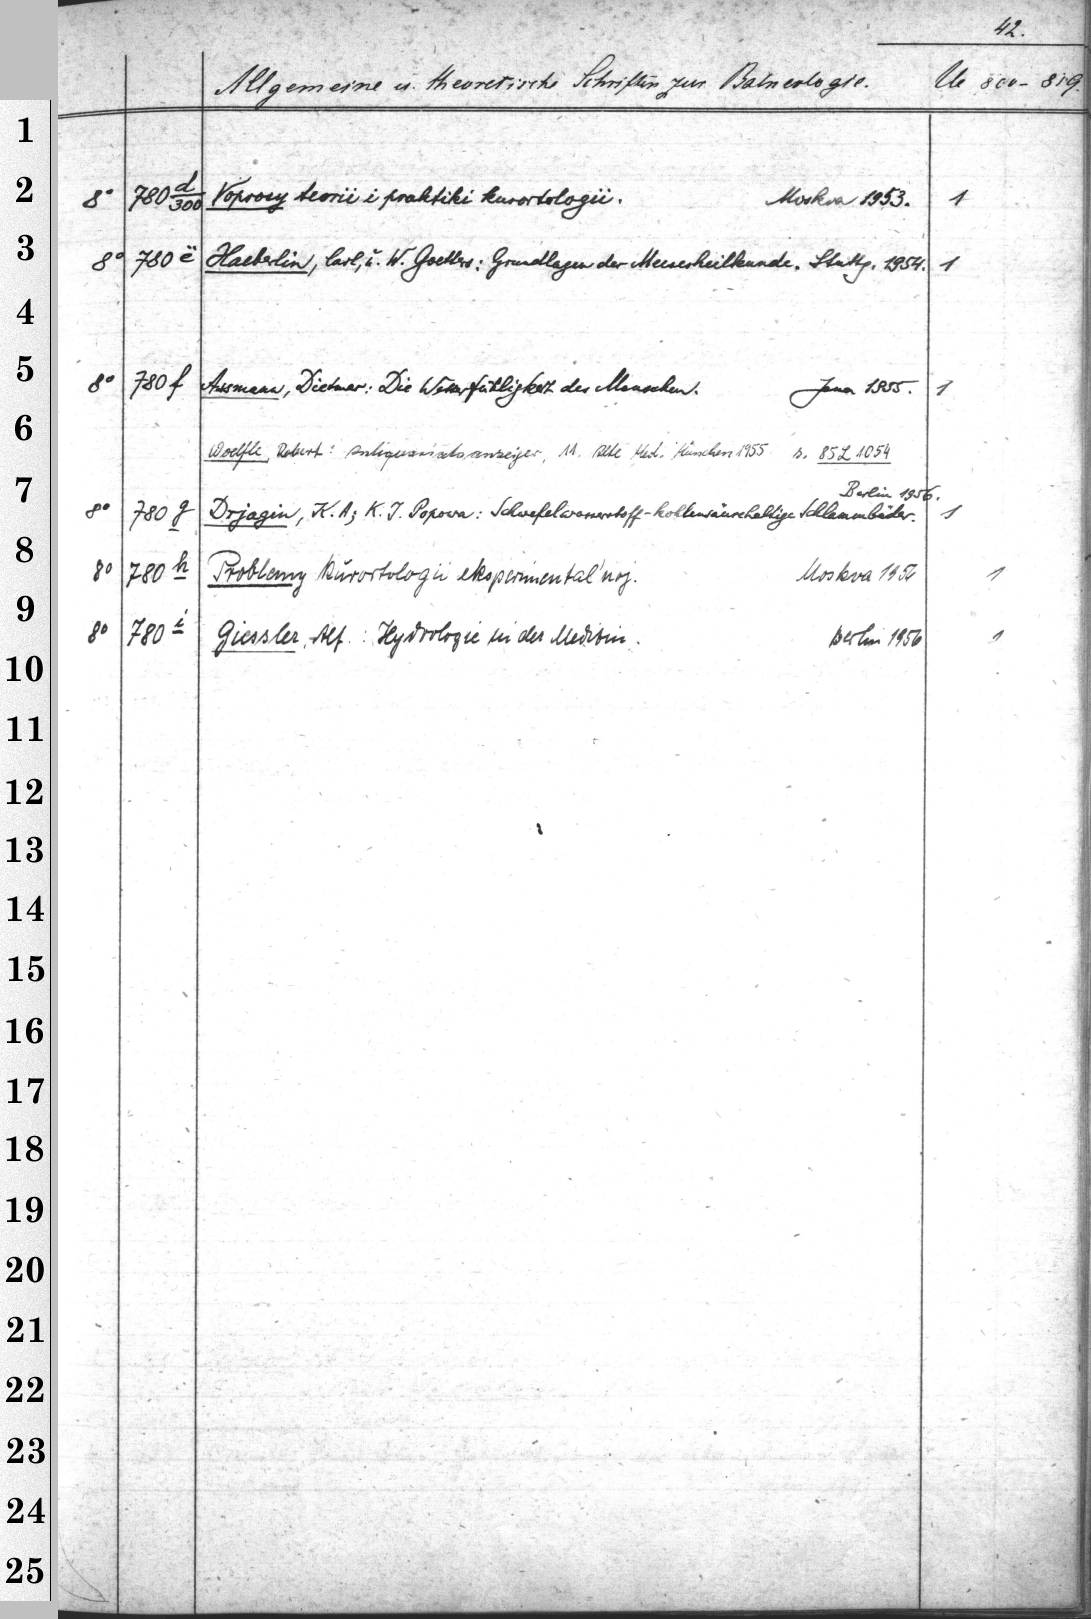 42.
Allgemeine u. theoretische Schriften zur Balneologie. Ue 800-819.
1
2 8° 780 d/300 Voprosy teorii i praktiki kurortologii. Moskva 1953. 1
3 8° 780 e Haeberlin, Carl, u. W. Goeters: Grundlagen der Meeresheilkunde. Stuttg. 1954. 1
4
5 8° 780 f Assmann, Dietmar: Die Wetterfühligkeit des Menschen. Jena 1955. 1
6 Woelfle, Robert: Antiquariatsanzeiger, 11. Alte Med. München 1955 s. 85 L 1054
Berlin 1956.
7 8° 780 g Drjagin, K. A; K. I. Popova: Schwefelwasserstoff-kohlensäurehaltige Schlammbäder. 1
8 8° 780 h Problemy kurortologii eksperimental'noj. Moskva 1954 1
9 8° 780 i Giessler, Alf.: Hydrologie in der Medizin. Berlin 1956 1
10
11
12
13
14
15
16
17
18
19
20
21
22
23
24
25